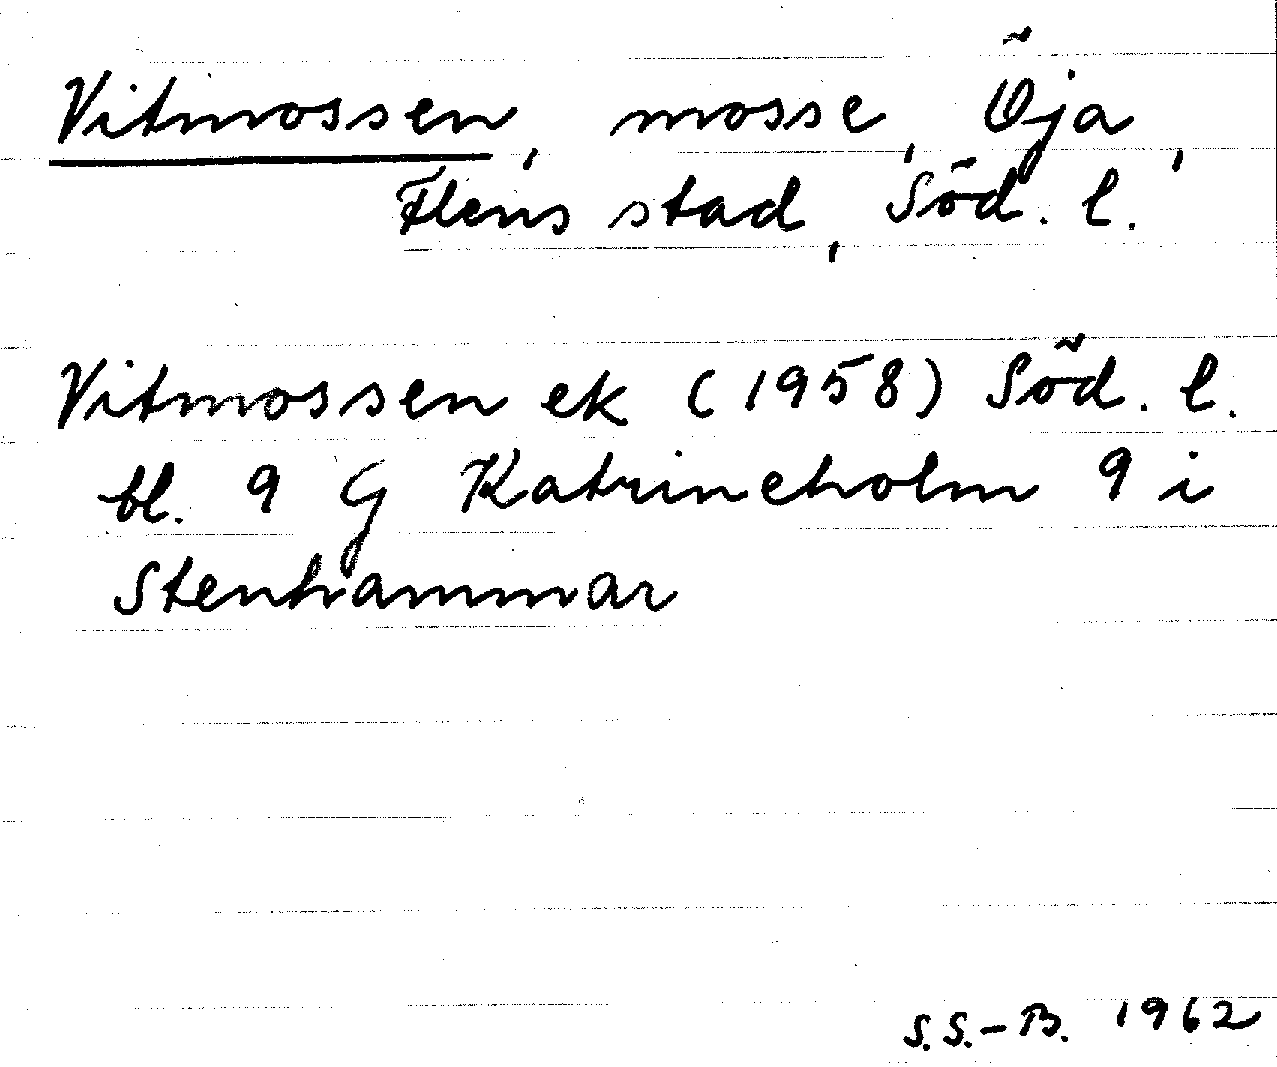 Vitmossen, mosse, Öja,
Flens stad, Söd. l.
Vitmossen ek (1958) Söd. l.
bl. 9 G Katrineholm 9 i
Stenhammar
S.S.-B. 1962